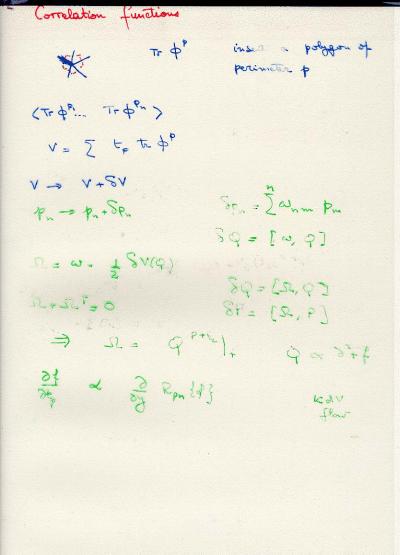 Correlation functions
Tr Φ^p insert a polygon of
perimeter p
⟨Tr Φ^{p_1} ... Tr Φ^{p_n}⟩
V = Σ t_p tr Φ^p
V → V + δV
p_n → p_n + δp_n δp_n = Σ^n ω_{nm} p_m
δQ = [ω, Q]
Ω = ω - 1/2 δV(Q) δQ = [Ω, Q]
Ω + Ω^T = 0 δP = [Ω, P]
⇒ Ω = Q^{p+1/2}|_+ Q ∝ ∂² + f
∂f/∂t_p ∝ ∂/∂y R_{p+1}{f} KdV
flow